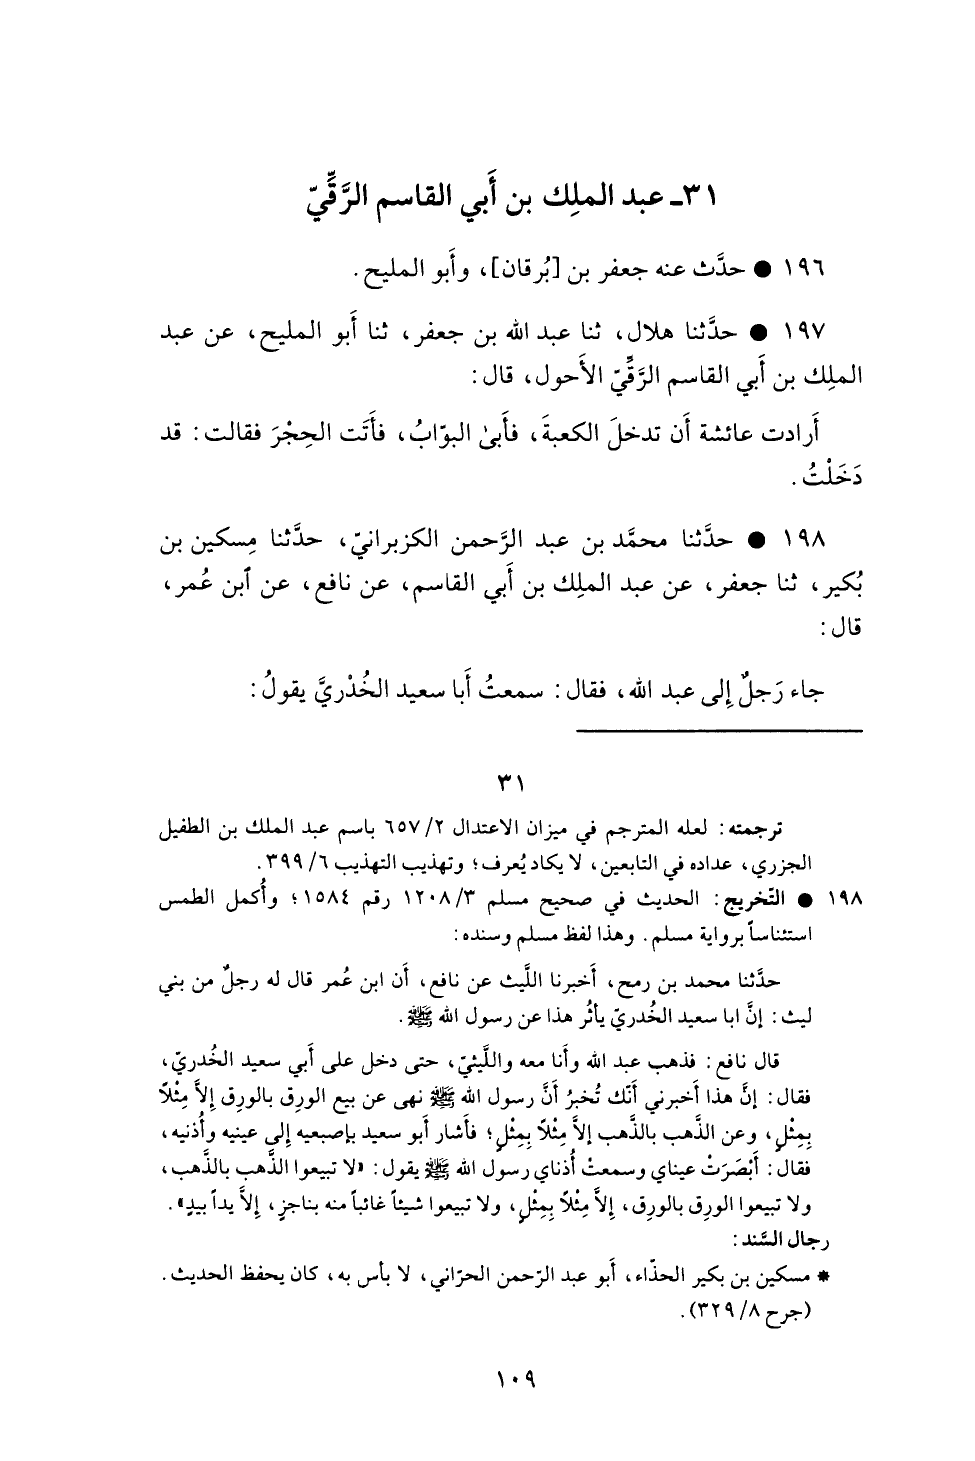 ٣١ـ عبد الملِك بن أَبي القاسم الرَّقِّيّ
١٩٦ ● حدَّث عنه جعفر بن [بُرقان]، وأَبو المليح.
١٩٧ ● حدَّثنا هلال، ثنا عبد الله بن جعفر، ثنا أَبو المليح، عن عبد
الملِك بن أَبي القاسم الرَّقِّيّ الأَحول، قال:
أَرادت عائشة أَن تدخلَ الكعبةَ، فأَبىٰ البوّابُ، فأَتَت الحِجْرَ فقالت: قد
دَخَلْتُ.
١٩٨ ● حدَّثنا محمَّد بن عبد الرَّحمن الكزبرانيّ، حدَّثنا مِسكين بن
بُكير، ثنا جعفر، عن عبد الملِك بن أَبي القاسم، عن نافع، عن ٱبن عُمر،
قال:
جاء رَجلٌ إِلى عبد الله، فقال: سمعتُ أَبا سعيد الخُدْريَّ يقولُ:
٣١
ترجمته: لعله المترجم في ميزان الاعتدال ٢/ ٦٥٧ باسم عبد الملك بن الطفيل
الجزري، عداده في التابعين، لا يكاد يُعرف؛ وتهذيب التهذيب ٦/ ٣٩٩.
١٩٨ ● التّخريج: الحديث في صحيح مسلم ٣/ ١٢٠٨ رقم ١٥٨٤؛ وأُكمل الطمس
استئناساً برواية مسلم. وهذا لفظ مسلم وسنده:
حدَّثنا محمد بن رمح، أَخبرنا اللَّيث عن نافع، أَن ابن عُمر قال له رجلٌ من بني
ليث: إنَّ ابا سعيد الخُدريّ يأثُر هذا عن رسول الله ﷺ.
قال نافع: فذهب عبد الله وأَنا معه واللَّيثيّ، حتى دخل على أَبي سعيد الخُدريّ،
فقال: إنَّ هذا أَخبرني أَنّك تُخبرُ أَنَّ رسول الله ﷺ نهى عن بيع الورِق بالورِق إلاَّ مِثْلاً
بِمِثْلٍ، وعن الذَّهب بالذَّهب إلاَّ مِثْلاً بِمِثْلٍ؛ فأَشار أَبو سعيد بإصبعيه إلى عينيه وأُذنيه،
فقال: أَبْصَرَتْ عيناي وسمعتْ أُذناي رسول الله ﷺ يقول: «لا تبيعوا الذَّهب بالذَّهب،
ولا تبيعوا الورِق بالورِق، إلاَّ مِثْلاً بِمِثْلٍ، ولا تبيعوا شيئاً غائباً منه بناجزٍ، إلاَّ يداً بيدٍ».
رجال السَّند:
* مسكين بن بكير الحذّاء، أَبو عبد الرّحمن الحرّاني، لا بأس به، كان يحفظ الحديث.
(جرح ٨/ ٣٢٩).
١٠٩